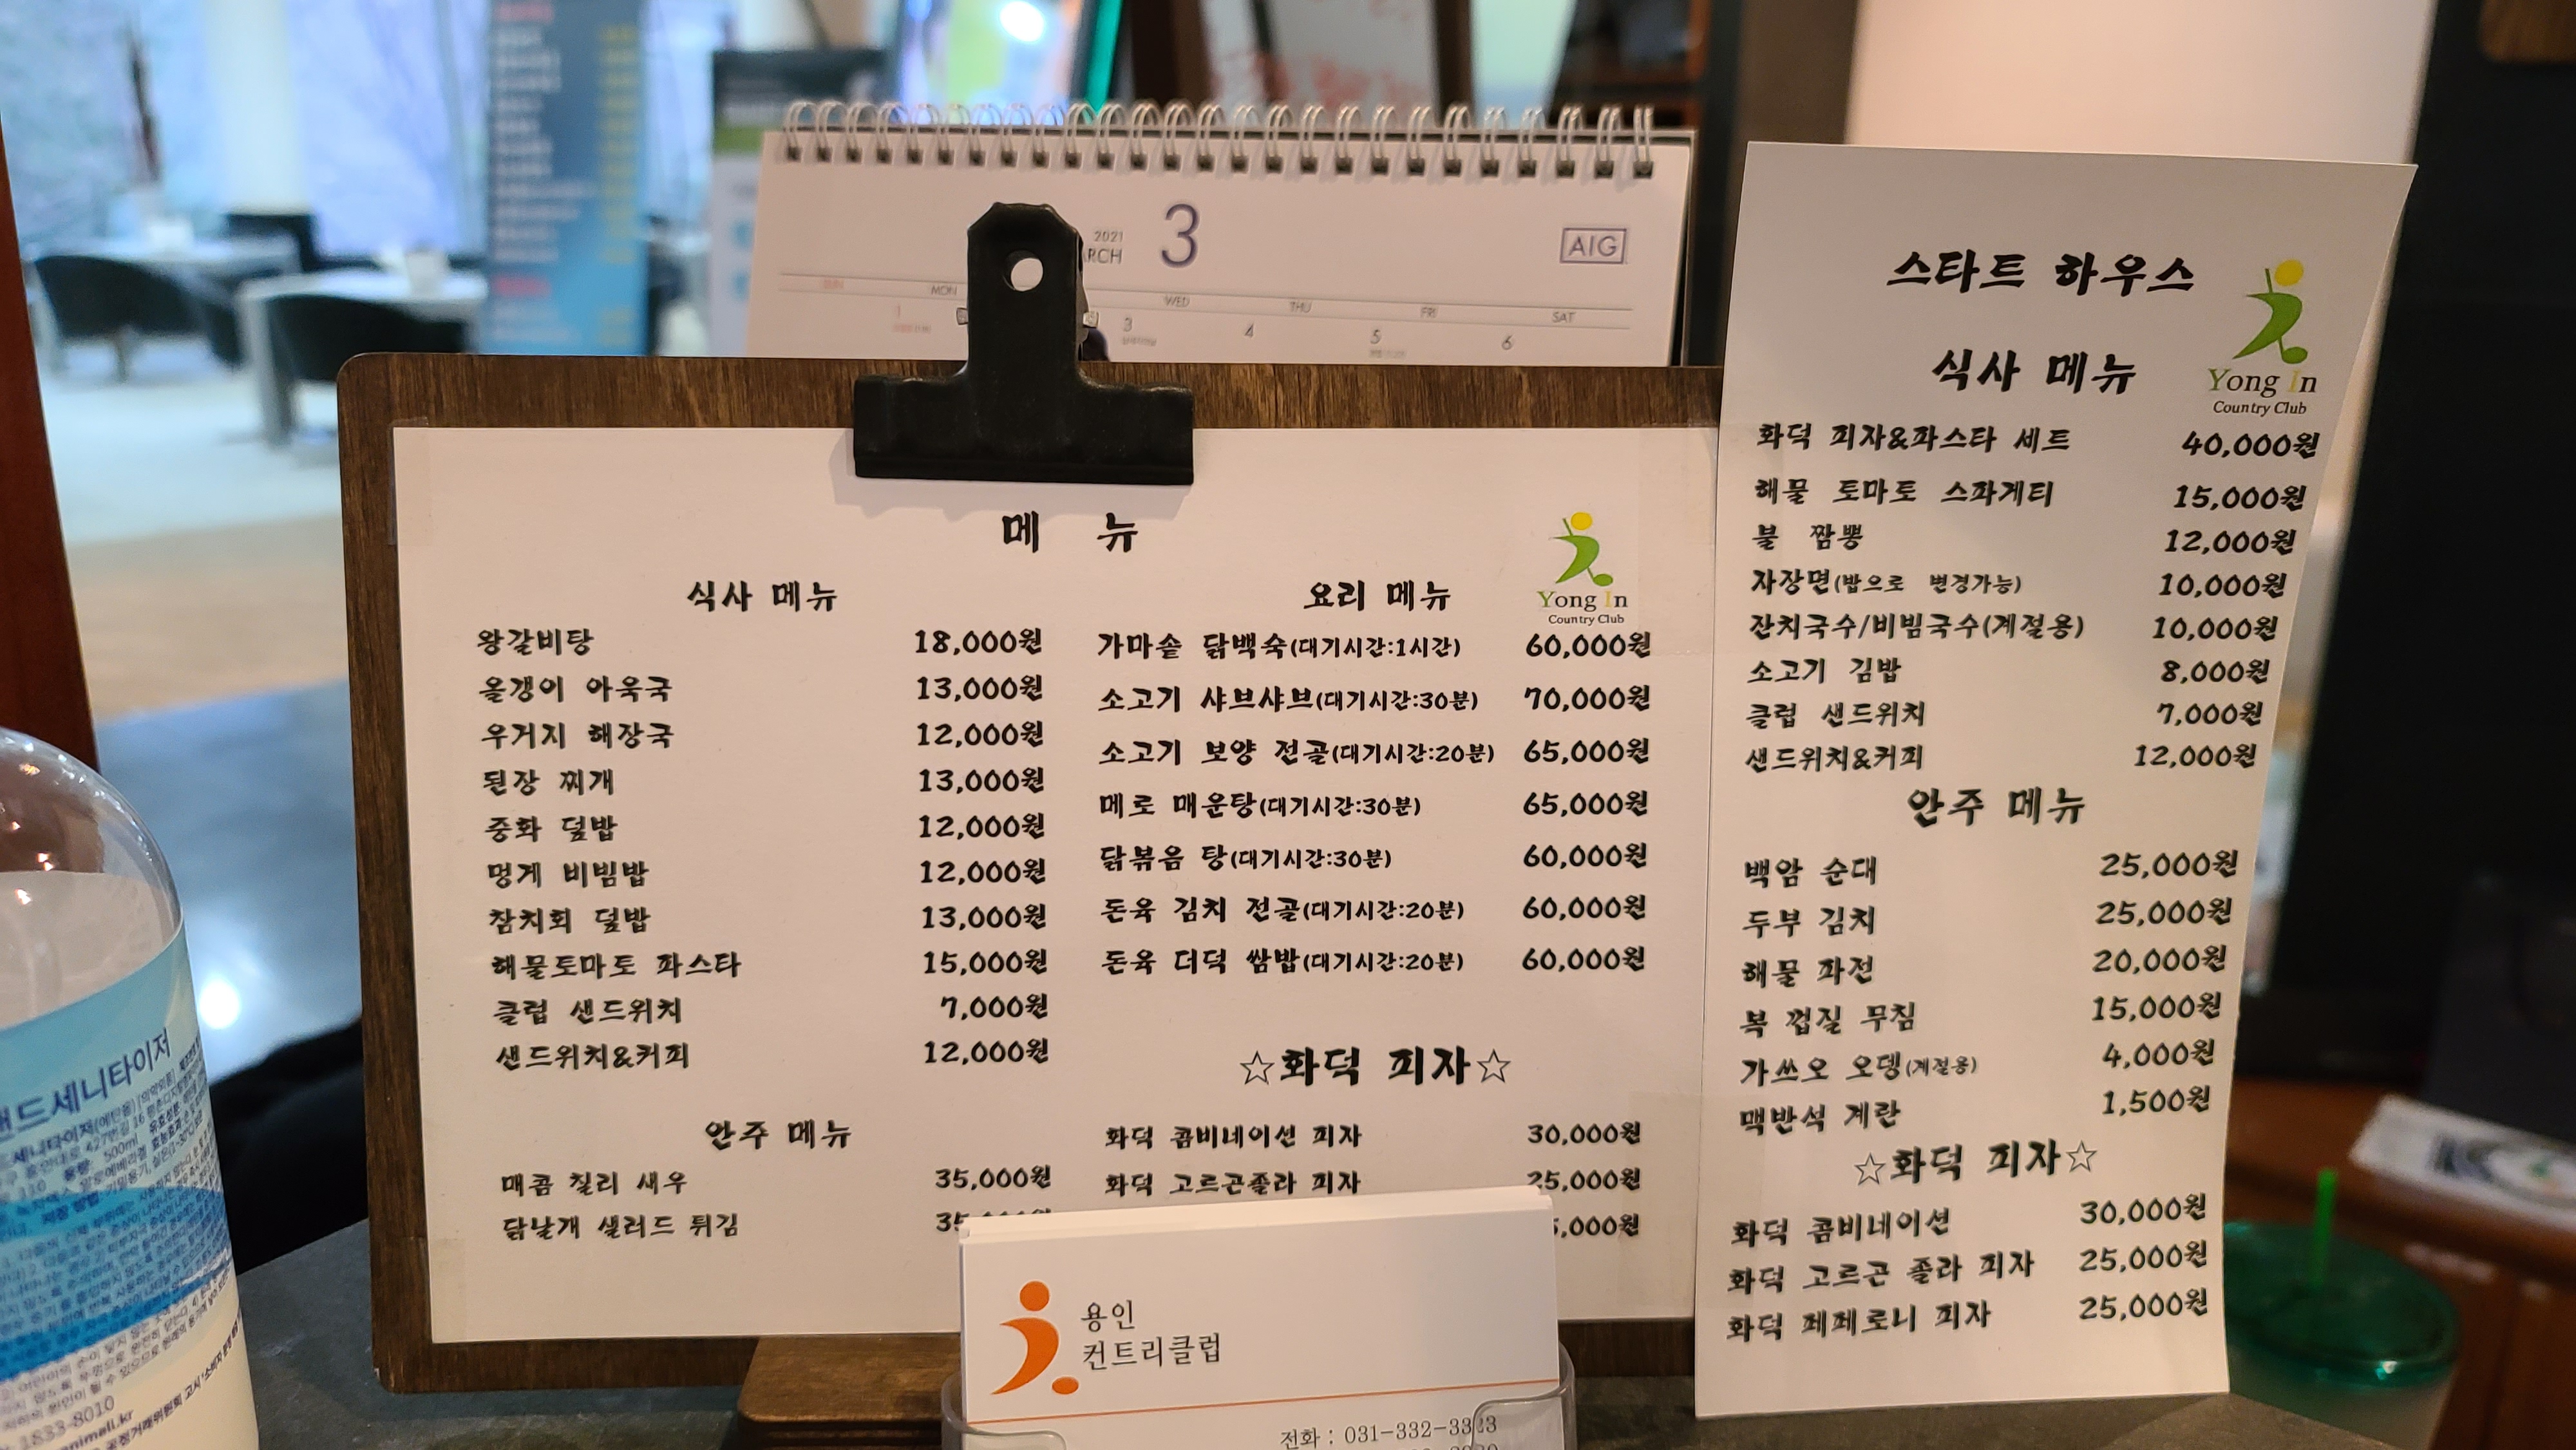 2021
3
AIG
SUN MON WED THU FRI SAT
1 3 4 5 6
메 뉴
Yong In
Country Club
식사 메뉴
왕갈비탕 18,000원
올갱이 아욱국 13,000원
우거지 해장국 12,000원
된장 찌개 13,000원
중화 덮밥 12,000원
멍게 비빔밥 12,000원
참치회 덮밥 13,000원
해물토마토 파스타 15,000원
클럽 샌드위치 7,000원
샌드위치&커피 12,000원
안주 메뉴
매콤 칠리 새우 35,000원
닭날개 샐러드 튀김
요리 메뉴
가마솥 닭백숙(대기시간:1시간) 60,000원
소고기 샤브샤브(대기시간:30분) 70,000원
소고기 보양 전골(대기시간:20분) 65,000원
메로 매운탕(대기시간:30분) 65,000원
닭볶음 탕(대기시간:30분) 60,000원
돈육 김치 전골(대기시간:20분) 60,000원
돈육 더덕 쌈밥(대기시간:20분) 60,000원
☆화덕 피자☆
화덕 콤비네이션 피자 30,000원
화덕 고르곤졸라 피자 25,000원
5,000원
스타트 하우스
Yong In
Country Club
식사 메뉴
화덕 피자&파스타 세트 40,000원
해물 토마토 스파게티 15,000원
불 짬뽕 12,000원
자장면(밥으로 변경가능) 10,000원
잔치국수/비빔국수(계절용) 10,000원
소고기 김밥 8,000원
클럽 샌드위치 7,000원
샌드위치&커피 12,000원
안주 메뉴
백암 순대 25,000원
두부 김치 25,000원
해물 파전 20,000원
복 껍질 무침 15,000원
가쓰오 오뎅(계절용) 4,000원
맥반석 계란 1,500원
☆화덕 피자☆
화덕 콤비네이션 30,000원
화덕 고르곤 졸라 피자 25,000원
화덕 페페로니 피자 25,000원
용인
컨트리클럽
전화 : 031-332-3323
핸드세니타이저
500ml
1833-8010